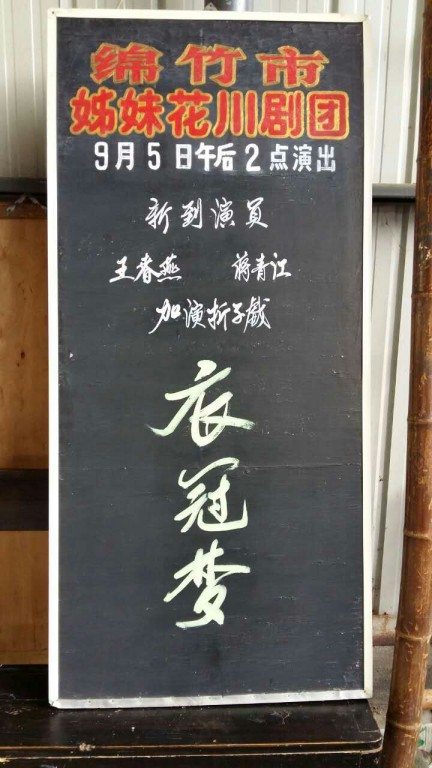 绵竹市
姊妹花川剧团
9月5日午后2点演出
新到演员
王春燕 蒋青江
加演折子戏
衣冠梦